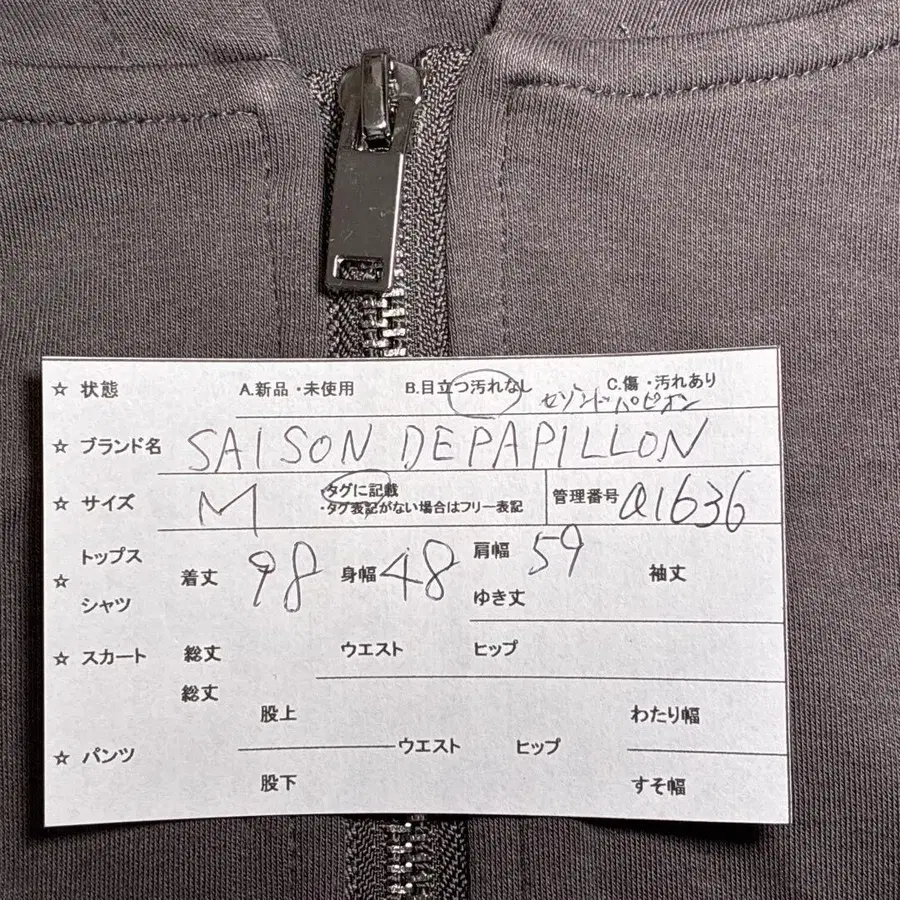 ☆ 状態 A.新品・未使用 B.目立つ汚れなし C.傷・汚れあり
セゾンドパピオン
☆ ブランド名 SAISON DEPAPILLON
☆ サイズ M ・タグに記載 管理番号 Q1636
・タグ表記がない場合はフリー表記
☆ トップス シャツ 着丈 98 身幅 48 肩幅 59 袖丈
ゆき丈
☆ スカート 総丈 ウエスト ヒップ
総丈
股上 わたり幅
☆ パンツ ウエスト ヒップ
股下 すそ幅